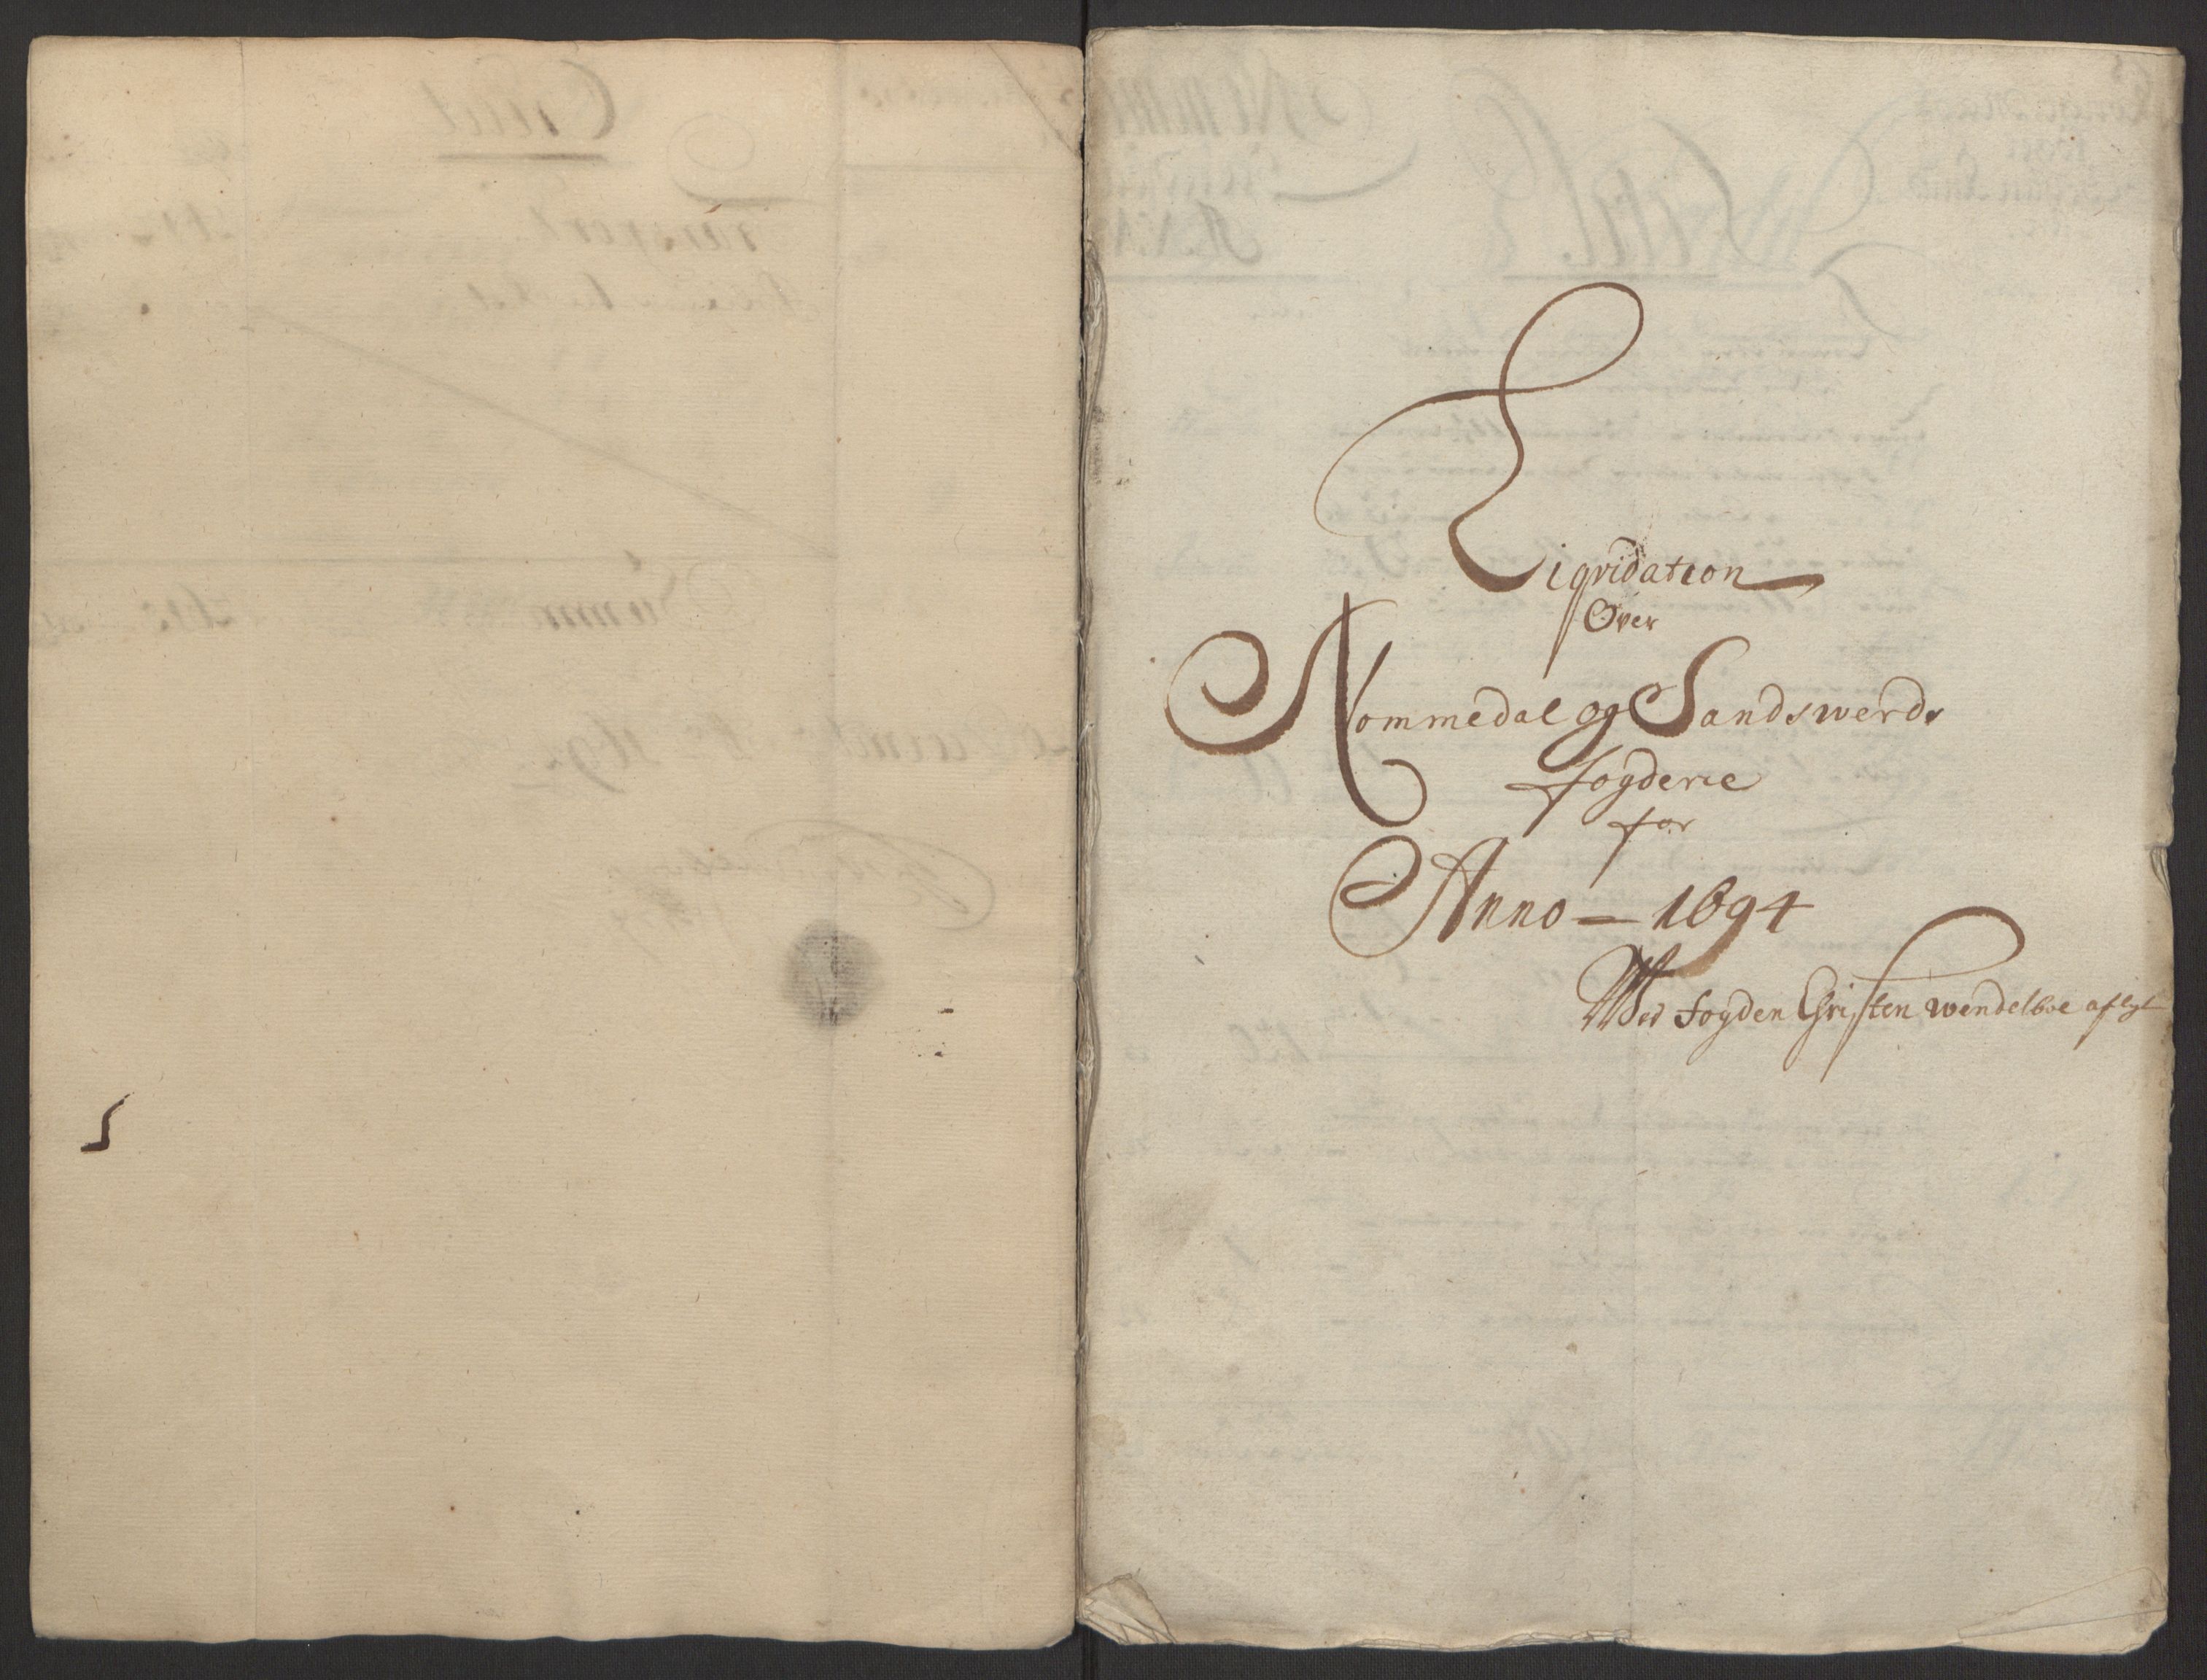 Liqvidation
Over
Nommedal og Sandswerds
fogderie
for
Anno — 1694
Wed fogden Christen Wendelboe aflgt